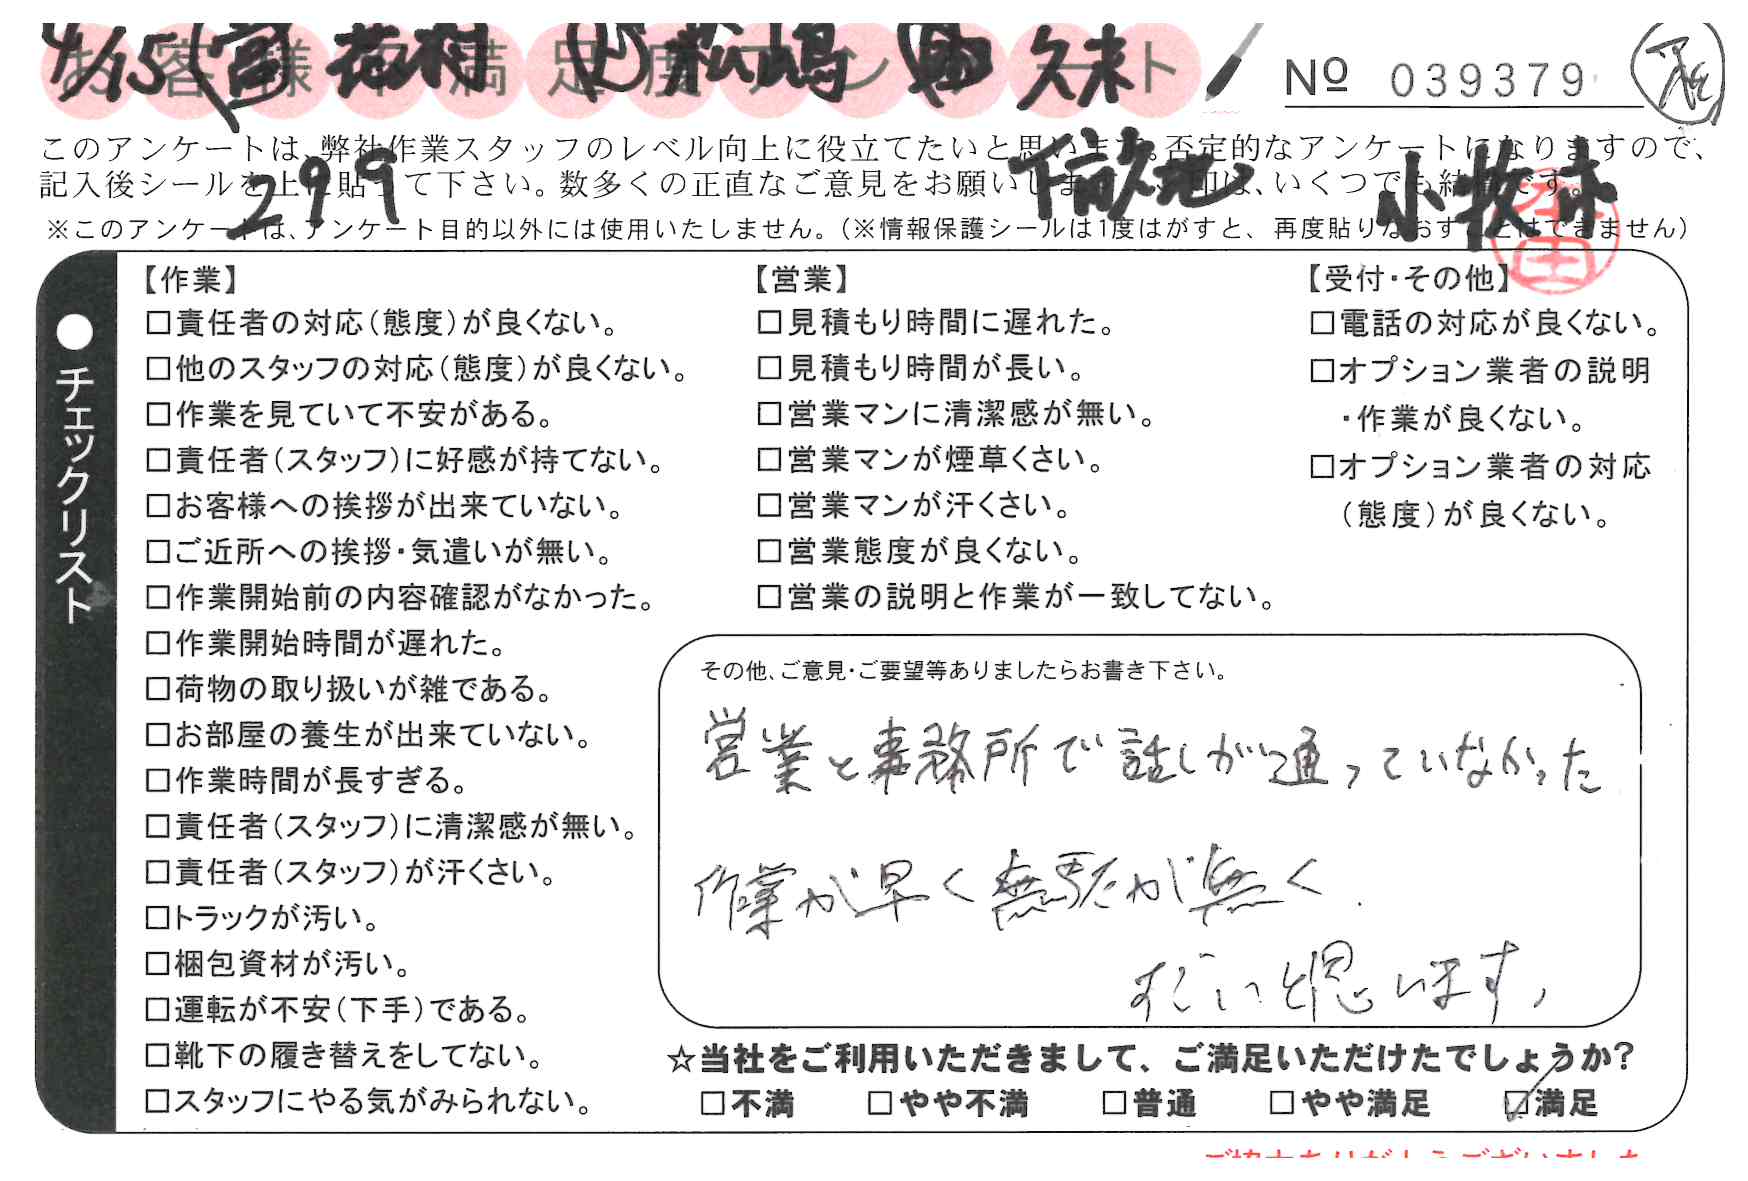 4/15 営 花村 松嶋 久来
お客様 満足度アンケート
№ 039379
このアンケートは、弊社作業スタッフのレベル向上に役立てたいと思います。否定的なアンケートになりますので、
記入後シールを上に貼って下さい。数多くの正直なご意見をお願いします。いくつでも結構です。
299 小牧
※このアンケートは、アンケート目的以外には使用いたしません。（※情報保護シールは1度はがすと、再度貼りなおすことはできません）
●チェックリスト
【作業】
□責任者の対応（態度）が良くない。
□他のスタッフの対応（態度）が良くない。
□作業を見ていて不安がある。
□責任者（スタッフ）に好感が持てない。
□お客様への挨拶が出来ていない。
□ご近所への挨拶・気遣いが無い。
□作業開始前の内容確認がなかった。
□作業開始時間が遅れた。
□荷物の取り扱いが雑である。
□お部屋の養生が出来ていない。
□作業時間が長すぎる。
□責任者（スタッフ）に清潔感が無い。
□責任者（スタッフ）が汗くさい。
□トラックが汚い。
□梱包資材が汚い。
□運転が不安（下手）である。
□靴下の履き替えをしてない。
□スタッフにやる気がみられない。
【営業】
□見積もり時間に遅れた。
□見積もり時間が長い。
□営業マンに清潔感が無い。
□営業マンが煙草くさい。
□営業マンが汗くさい。
□営業態度が良くない。
□営業の説明と作業が一致してない。
【受付・その他】
□電話の対応が良くない。
□オプション業者の説明
・作業が良くない。
□オプション業者の対応
（態度）が良くない。
その他、ご意見・ご要望等ありましたらお書き下さい。
営業と事務所で話しが通っていなかった
作業が早く無駄が無く
すごいと思います。
☆当社をご利用いただきまして、ご満足いただけたでしょうか?
□不満 □やや不満 □普通 □やや満足 ☑満足
ご協力ありがとうございました